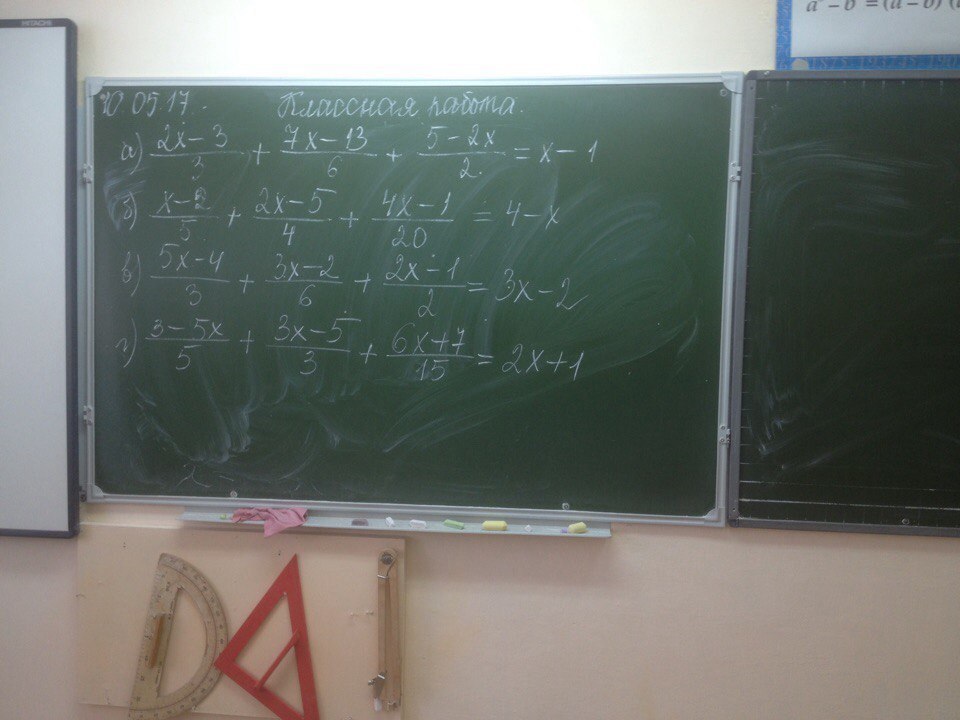 HITACHI
a² - b² = (a - b) (a
10.05.17. Классная работа.
а) (2x - 3)/3 + (7x - 13)/6 + (5 - 2x)/2 = x - 1
б) (x - 2)/5 + (2x - 5)/4 + (4x - 1)/20 = 4 - x
в) (5x - 4)/3 + (3x - 2)/6 + (2x - 1)/2 = 3x - 2
г) (3 - 5x)/5 + (3x - 5)/3 + (6x + 7)/15 = 2x + 1